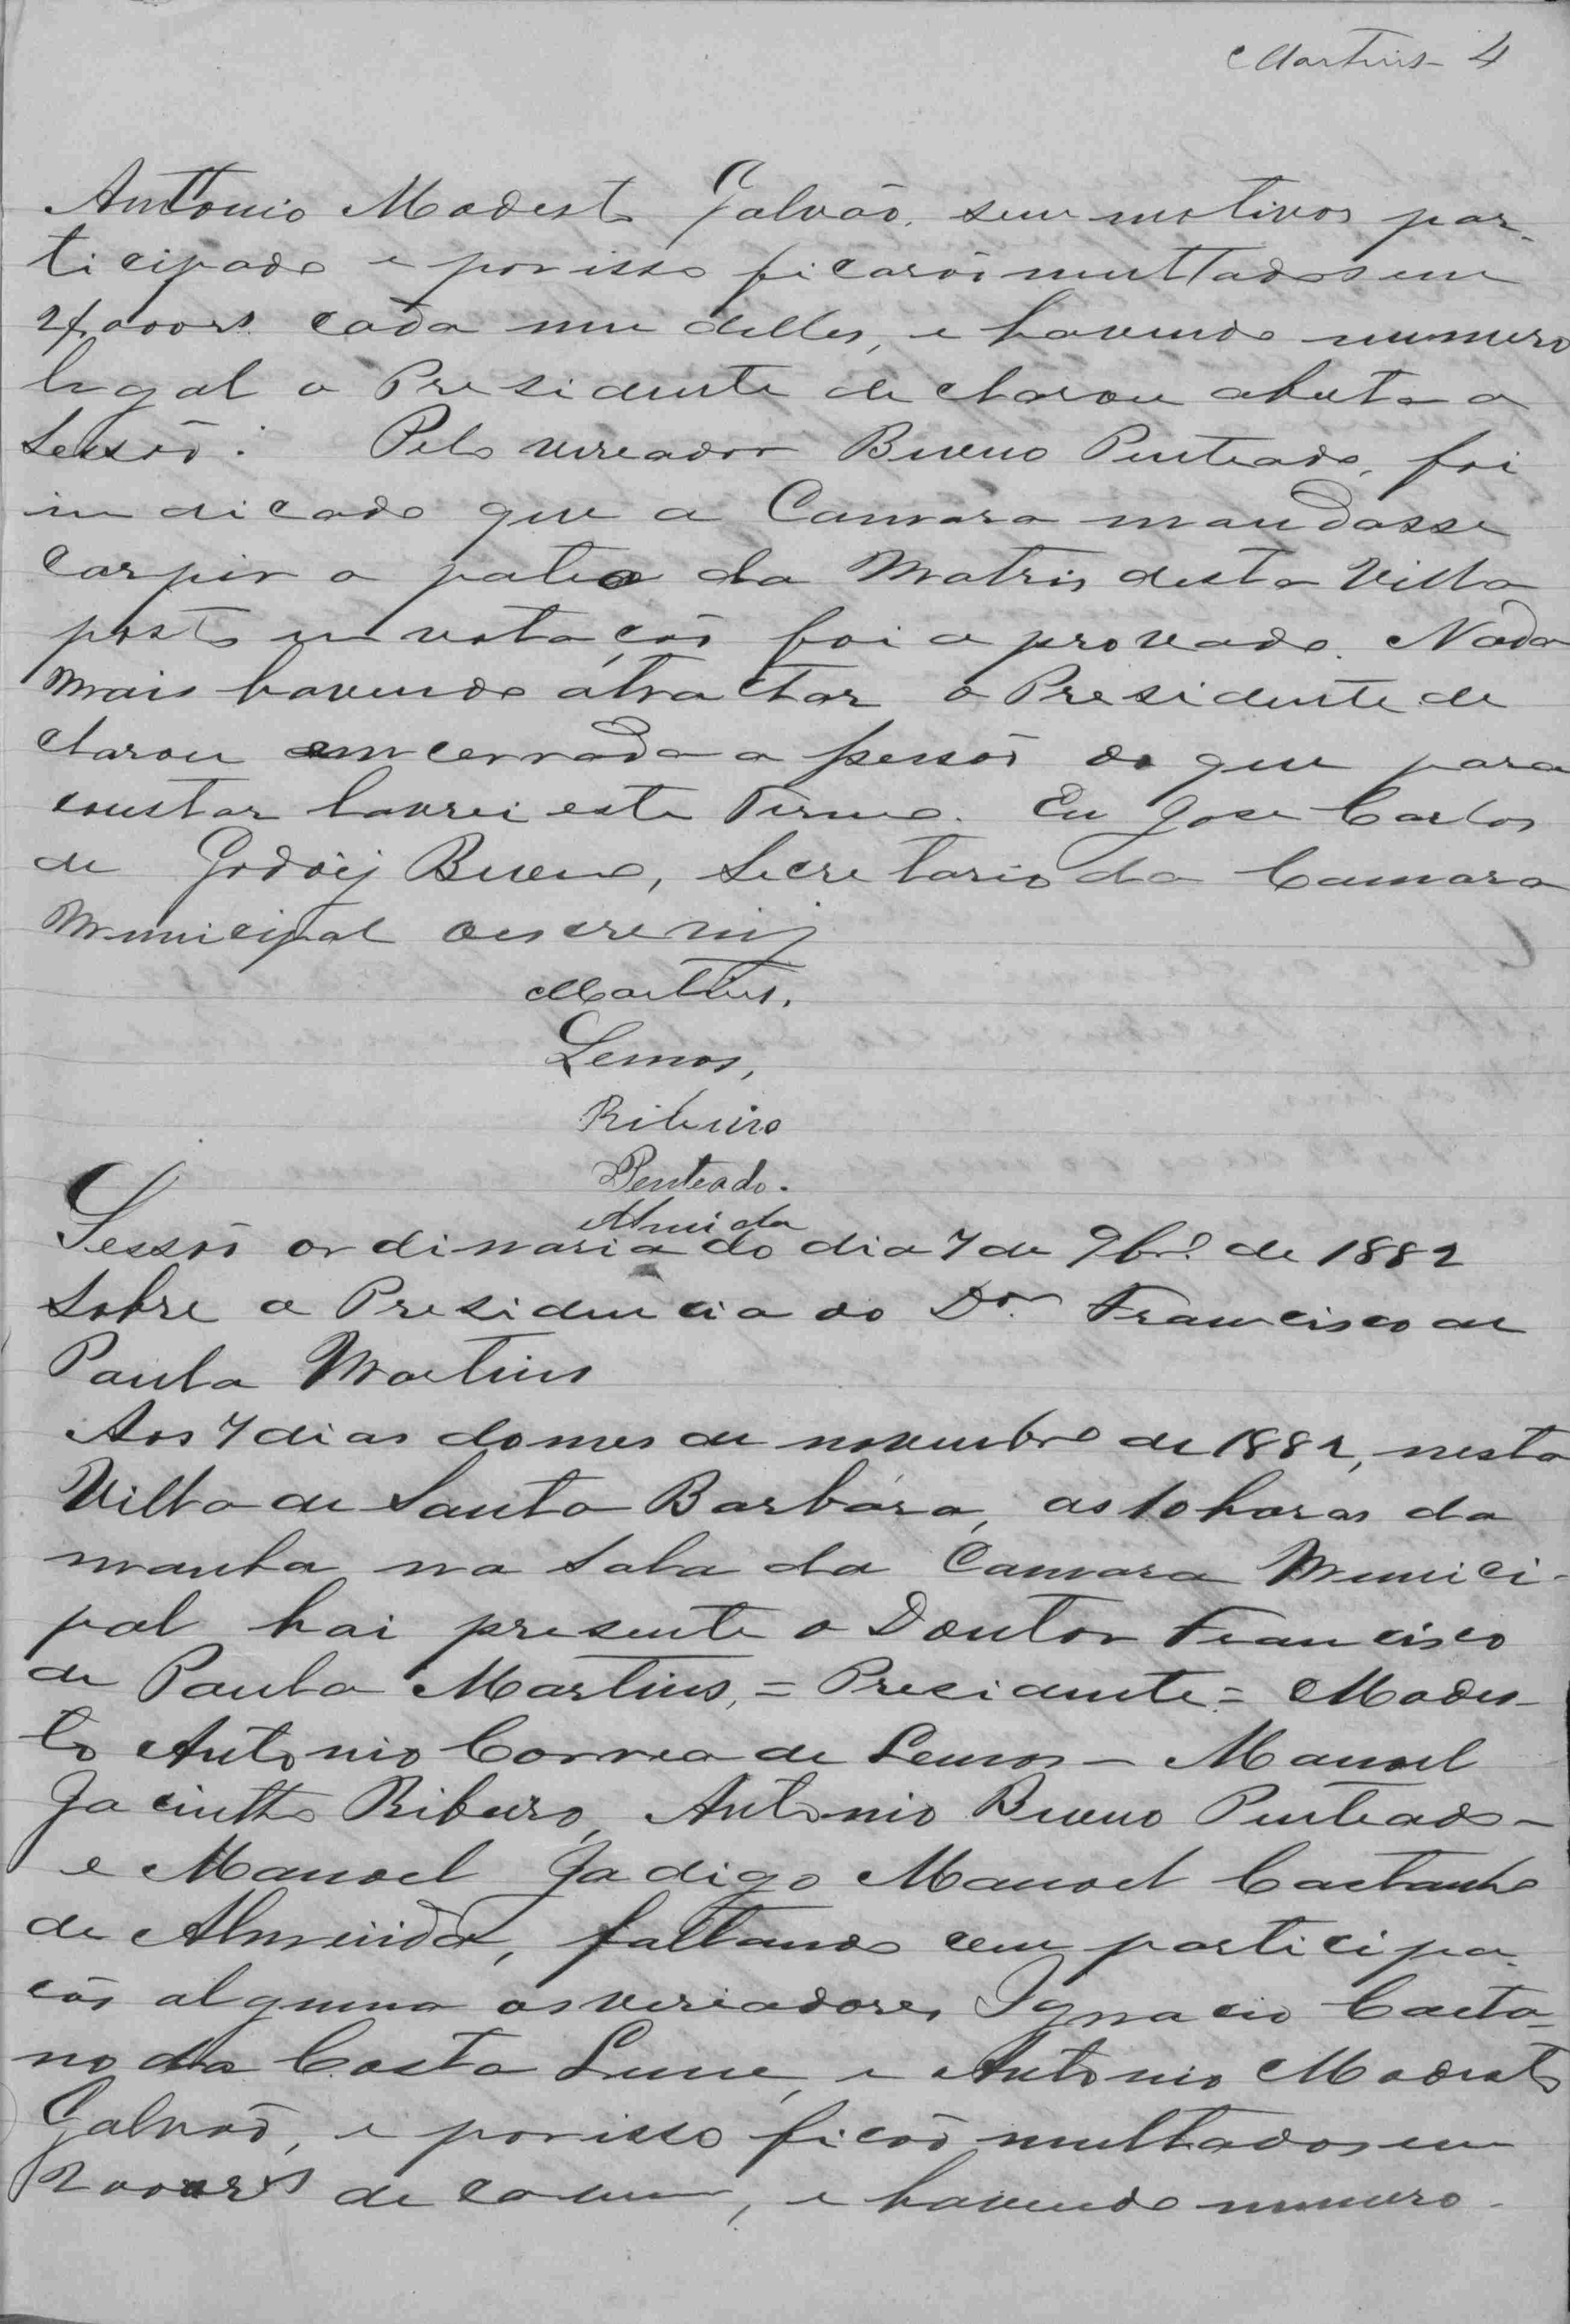 Martins 4
Anttonio Modesto Galvão, sem motivos par-
ticipado e porisso ficarão multtados em
2$000rs cada um delles, e havendo numero
legal o Presidente declarou aberta a
Sessão: Pelo vereador Bueno Penteado, foi
indicado que a Camara mandasse
carpir o pateo da Matris desta Villa
posto em votação foi aprovado. Nada
mais havendo atractar o Presidente de
clarou emcerrada a sessão do que para
constar lavrei este Termo. Eu Jose Carlos
de Godôij Bueno, Secretario da Camara
Municipal oescrevij
Martins.
Lemos,
Ribeiro
Penteado.
Almeida
Sessão ordinaria do dia 7 de 9brº de 1882
Sobre a Presidencia do Dor Francisco de
Paula Martins
Aos 7 dias domes de novembro de 1882, nesta
Villa de Santa Barbára, as 10 horas da
manha na sala da Camara Munici-
pal hai presente o Doutor Francisco
de Paula Martins, = Presidente = Modes-
to Antonio Correa de Lemos - Manoel
Jacintho Ribeiro, Antonio Bueno Penteado -
e Manoel Ja digo Manoel Caetanho
de Almeida, faltando cem participa-
cão alguma osvereadores Ignacio Caeta-
no da Costa Leme, e Antonio Modesto
Galvão, e porisso ficão multados em
2000rs de cada um, e havendo numero -